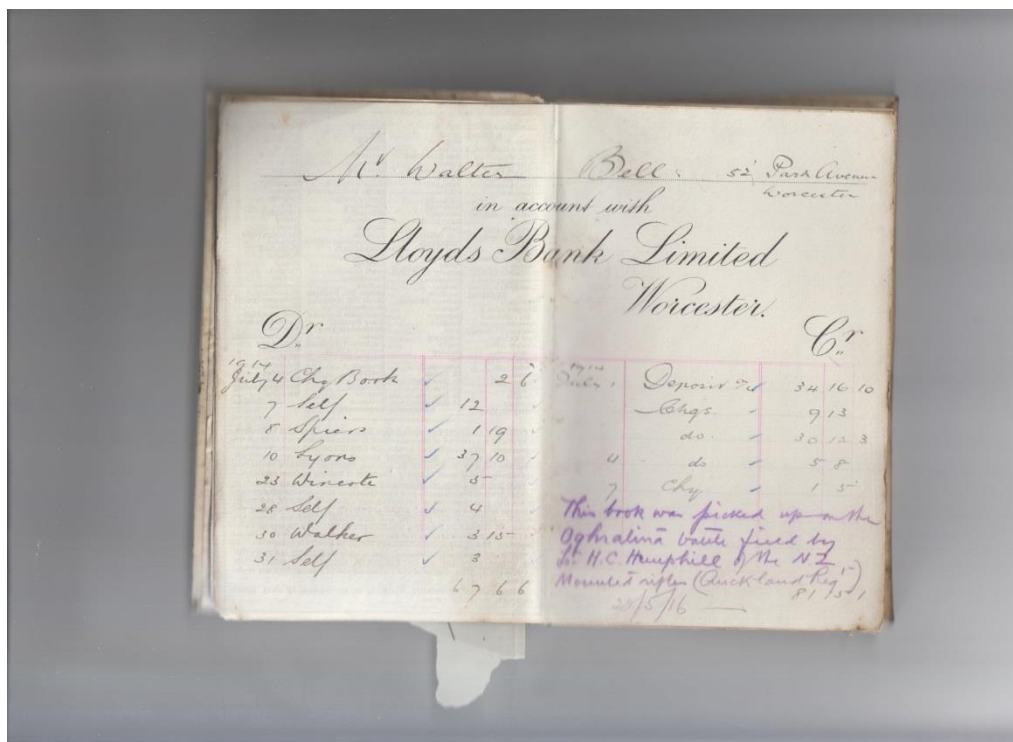 Mr. Walter Bell. 52 Park Avenue
Worcester
in account with
Lloyds Bank Limited
Worcester.
Dr.
Cr.
1914
July 4 Chq Book 2 6
7 Self 12
8 Spiers 1 19
10 Lyons 37 10
23 Wincote 5
28 Self 4
30 Walker 3 15
31 Self 3
67 6 6
1914
July 1 Deposit 34 16 10
Chqs. 9 13
do. 30 12 3
4 do 5 8
7 Chq 1 5
This book was picked up on the
Oghratina battle field by
H.C. Hemphill of the NZ
Mounted rifles (Auckland Reg.)
81 15 1
/5/16